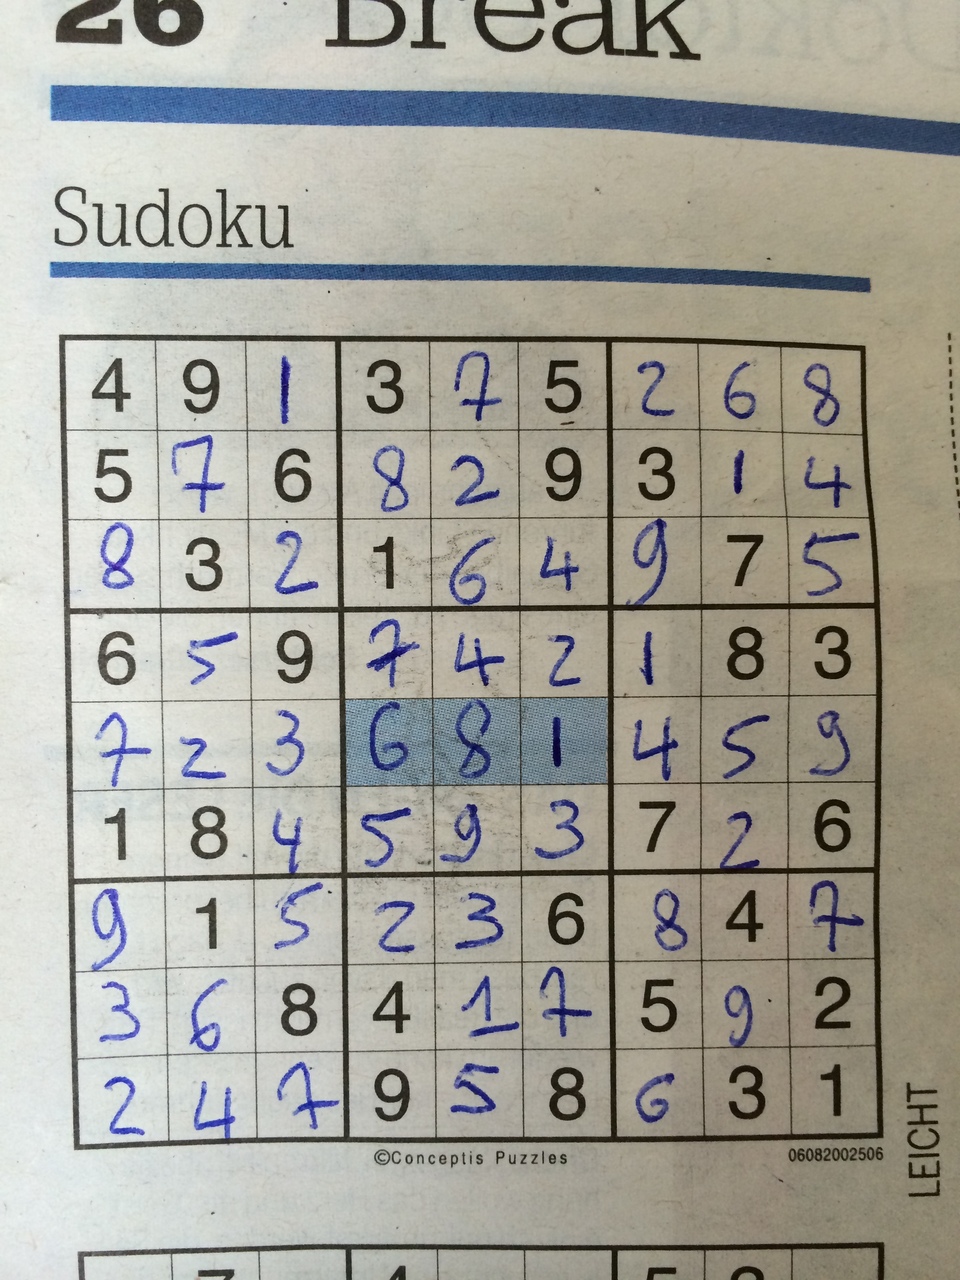 26 Break
Sudoku
4 9 1 3 7 5 2 6 8
5 7 6 8 2 9 3 1 4
8 3 2 1 6 4 9 7 5
6 5 9 7 4 2 1 8 3
7 2 3 6 8 1 4 5 9
1 8 4 5 9 3 7 2 6
9 1 5 2 3 6 8 4 7
3 6 8 4 1 7 5 9 2
2 4 7 9 5 8 6 3 1
©Conceptis Puzzles 06082002506
LEICHT